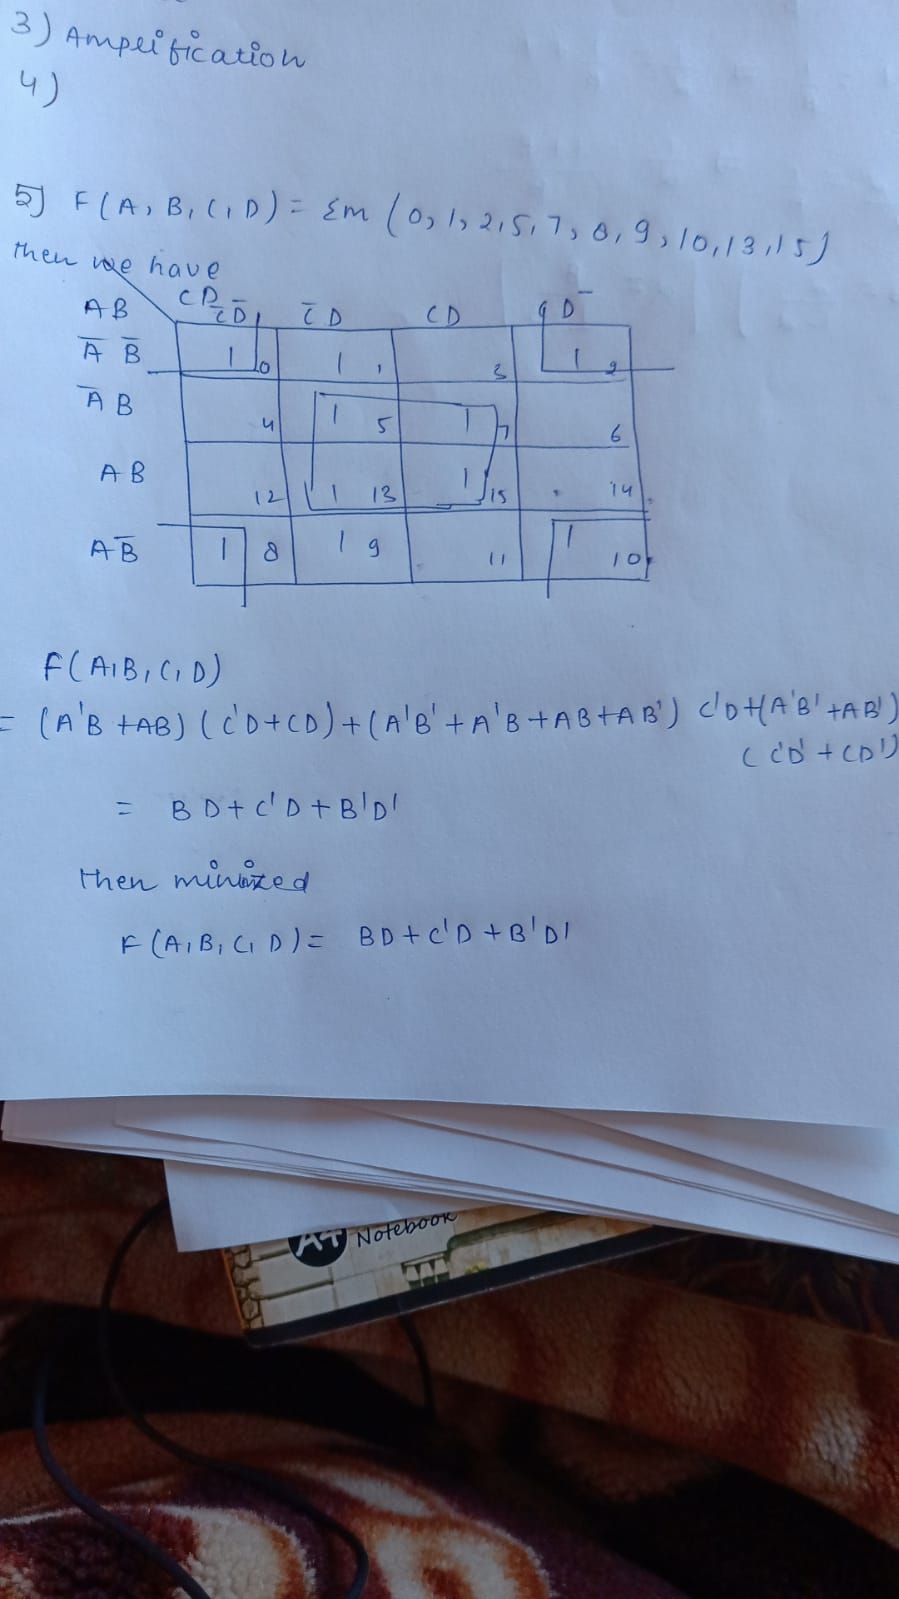 3) Amplification
4)
5] F(A, B, C, D) = Σm (0, 1, 2, 5, 7, 8, 9, 10, 13, 15)
then we have
CD
AB C̅D̅ C̅D CD CD̅
A̅ B̅ 1 0 1 1 3 1 2
A̅ B 4 1 5 1 7 6
AB 12 1 13 1 15 14
AB̅ 1 8 1 9 11 1 10
F(A, B, C, D)
= (A'B + AB) (C'D + CD) + (A'B' + A'B + AB + AB') C'D + (A'B' + AB')
(C'D' + CD')
= BD + C'D + B'D'
then minized
F(A, B, C, D) = BD + C'D + B'D'
A4 Notebook